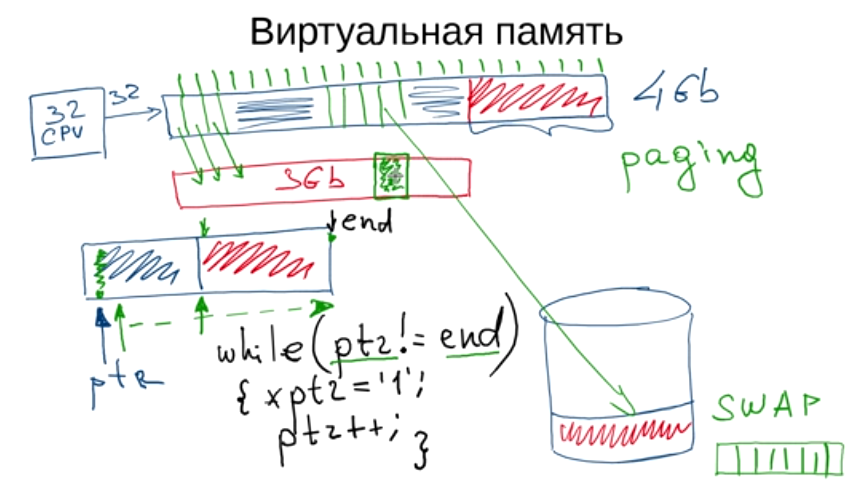 Виртуальная память
32
CPU
32
4Gb
paging
3Gb
end
ptr
while(ptr != end)
{ *ptr = '1';
ptr++; }
SWAP